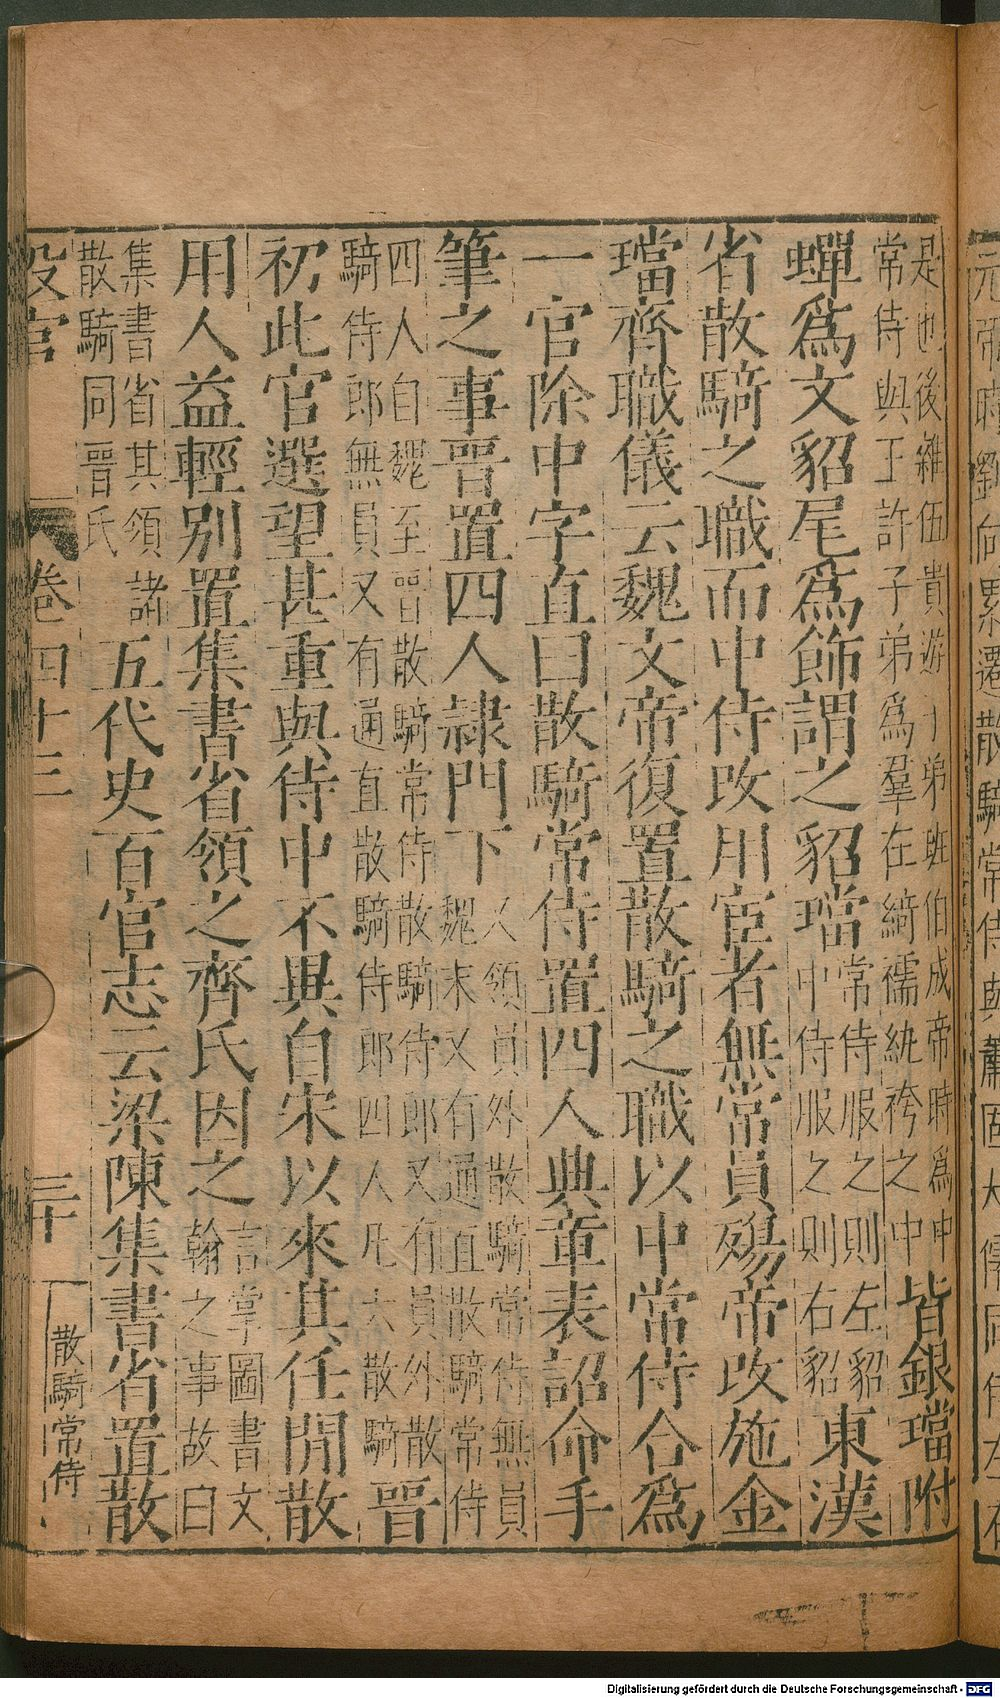 是也後雜伍貴游子弟班伯成帝時爲中
常侍與王許子弟爲羣在綺襦紈袴之中
皆銀璫附
蟬爲文貂尾爲飾謂之貂璫
常侍服之則左貂
中侍服之則右貂
東漢
省散騎之職而中侍改用宦者無常員殤帝改施金
璫齊職儀云魏文帝復置散騎之職以中常侍合爲
一官除中字直曰散騎常侍置四人典章表詔命手
筆之事晉置四人隷門下
又領員外散騎常侍無員
魏末又有通直散騎常侍
四人自魏至晉散騎常侍散騎侍郎又有員外散
騎侍郎無員又有通直散騎侍郎四人凡六散騎
晉
初此官選望甚重與侍中不異自宋以來其任閒散
用人益輕別置集書省領之齊氏因之
言掌圖書文
翰之事故曰
集書省其領諸
散騎同晉氏
五代史百官志云梁陳集書省置散
設官
卷四十三
三十
散騎常侍
元帝時劉向累遷散騎常侍與蕭
Digitalisierung gefördert durch die Deutsche Forschungsgemeinschaft - DFG